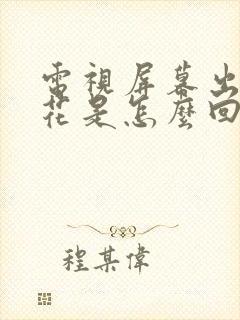 電視屏幕出
花是怎麼回
程某偉